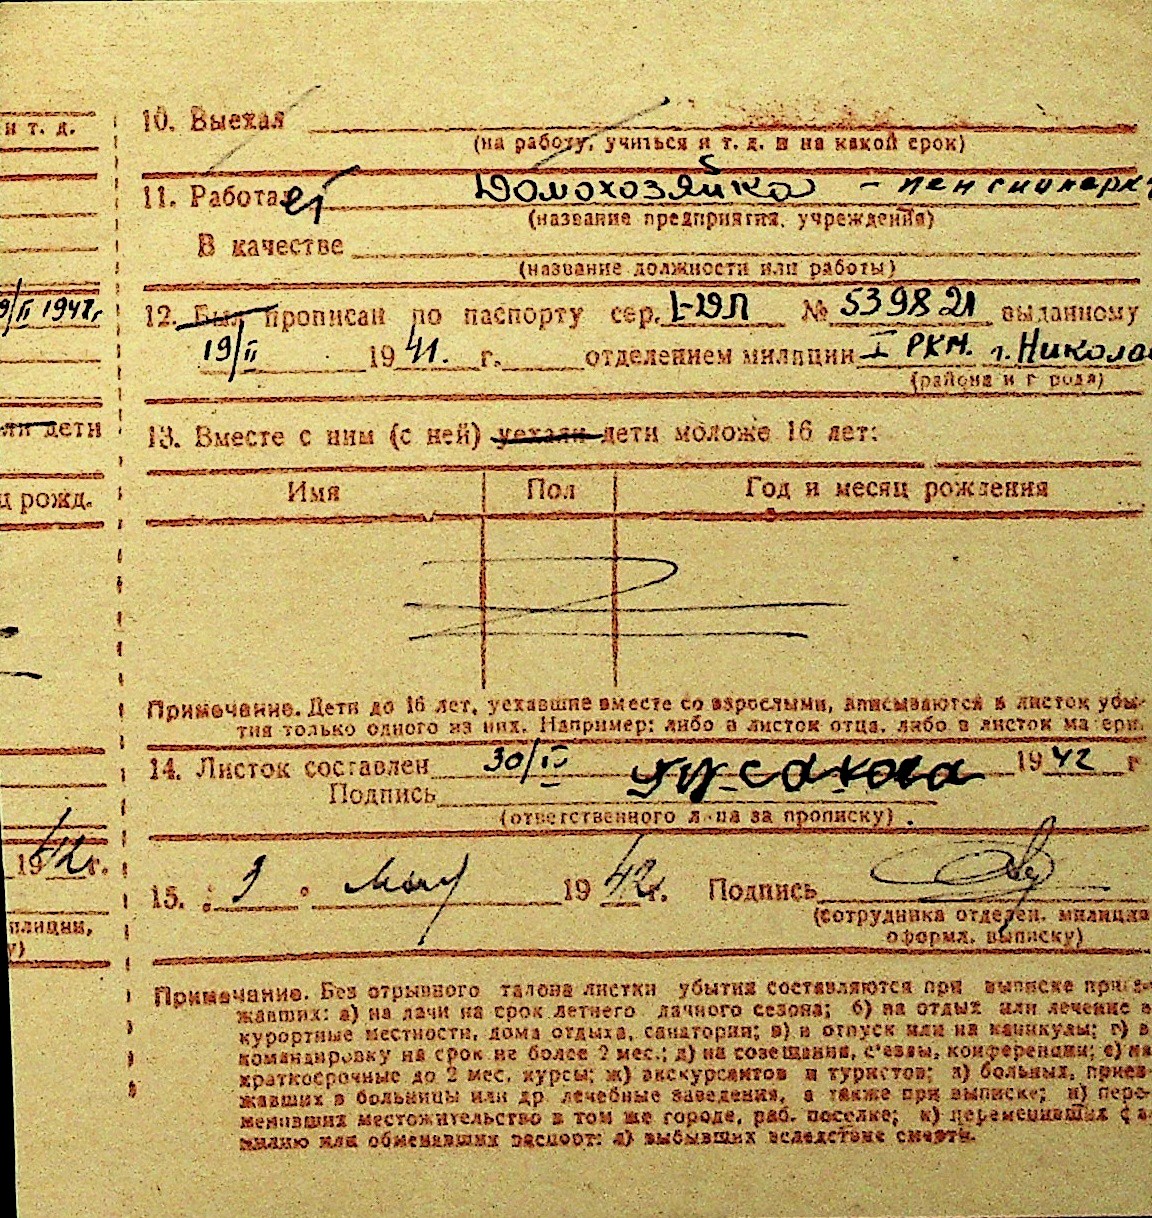 и т. д.
9/II 1942г
ли дети
ц рожд.
1942г.
лиции,
у)
10. Выехал
(на работу, учиться и т. д. и на какой срок)
11. Работает Домохозяйка - пенсионерка
(название предприятия, учреждения)
В качестве
(название должности или работы)
12. Был прописан по паспорту сер. I-ЭП № 539821 выданному
19/II 1941. г. отделением милиции I РКМ. г. Никола
(района и г рода)
13. Вместе с ним (с ней) уехали дети моложе 16 лет:
Имя Пол Год и месяц рождения
Примечание. Дети до 16 лет, уехавшие вместе со взрослыми, вписываются в листок убы-
тия только одного из них. Например: либо в листок отца, либо в листок матери.
14. Листок составлен 30/IV 1942 г
Подпись
(ответственного лица за прописку)
15. 9 мая 1942г. Подпись
(сотрудника отделен. милиции
оформл. выписку)
Примечание. Без отрывного талона листки убытия составляются при выписке приез-
жавших: а) на дачи на срок летнего дачного сезона; б) на отдых или лечение в
курортные местности, дома отдыха, санатории; в) в отпуск или на каникулы; г) в
командировку на срок не более 2 мес.; д) на совещания, с'езды, конференции; е) на
краткосрочные до 2 мес. курсы; ж) экскурсантов и туристов; з) больных, приез-
жавших в больницы или др. лечебные заведения, а также при выписке; и) пере-
менивших местожительство в том же городе, раб. поселке; к) переменивших фа
милию или обменявших паспорт; л) выбывших вследствие смерти.